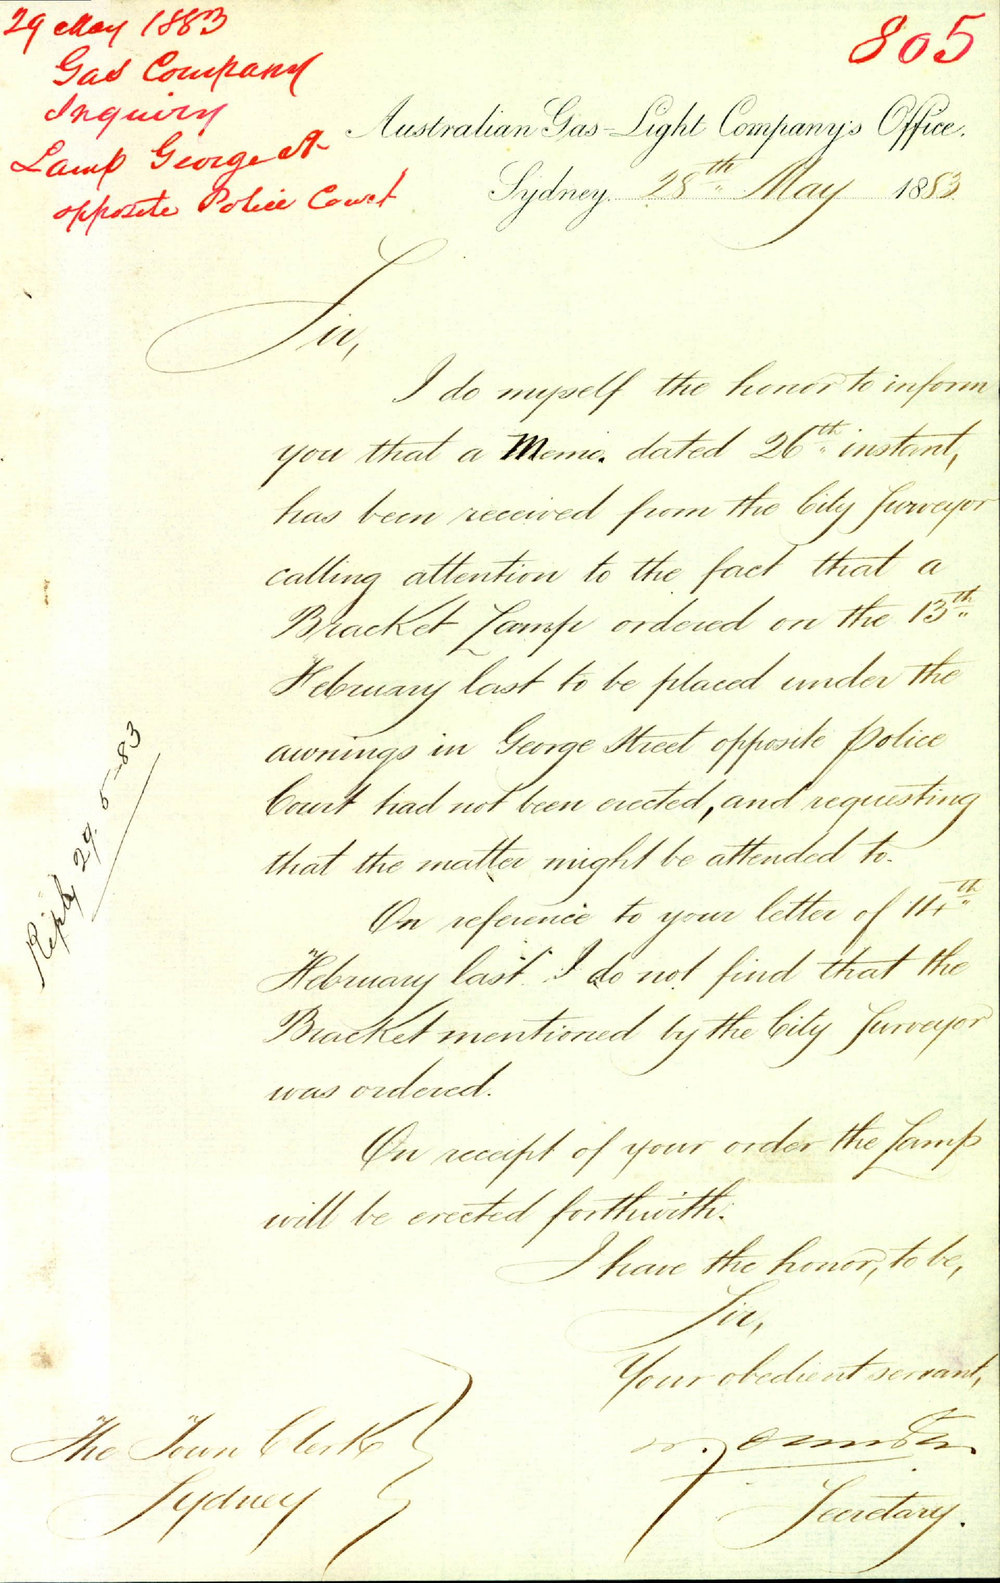 29 May 1883
Gas Company
Inquiry
Lamp George St
opposite Police Court
805
Australian Gas-Light Company's Office.
Sydney. 28th May 1883
Sir,
I do myself the honor to inform
you that a Memo. dated 26th instant,
has been received from the City Surveyor
calling attention to the fact that a
Bracket Lamp ordered on the 13th
February last to be placed under the
awnings in George Street opposite Police
Court had not been erected, and requesting
that the matter might be attended to.
On reference to your letter of 14th
February last I do not find that the
Bracket mentioned by the City Surveyor
was ordered.
On receipt of your order the Lamp
will be erected forthwith.
I have the honor, to be,
Sir,
Your obedient servant,
Secretary.
The Town Clerk
Sydney
Reply 29.5-83